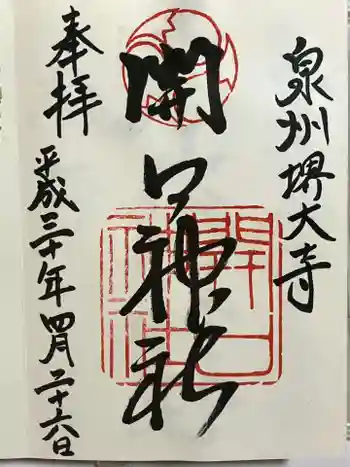 泉州堺大寺
開口神社
奉拝
平成三十年四月二十六日
開口
神社